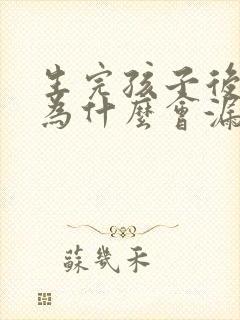 生完孩子後
為什麼會漏
蘇幾禾